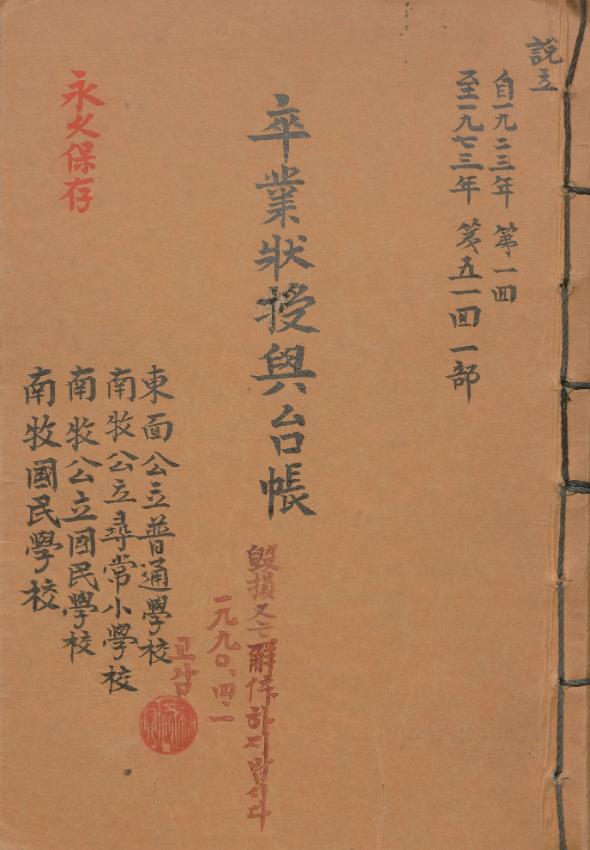 說立
自一九二三年 第一回
至一九七三年 第五一回 一部
卒業狀授與台帳
毁損又는 解体하지맙시다
一九九〇.四.一
교감
東面公立普通學校
南牧公立尋常小學校
南牧公立國民學校
南牧國民學校
永久保存